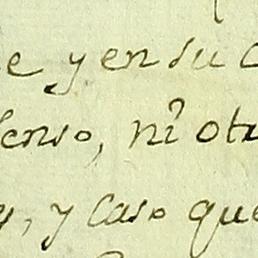 e y en su c
enso, ni otr
y, y caso que